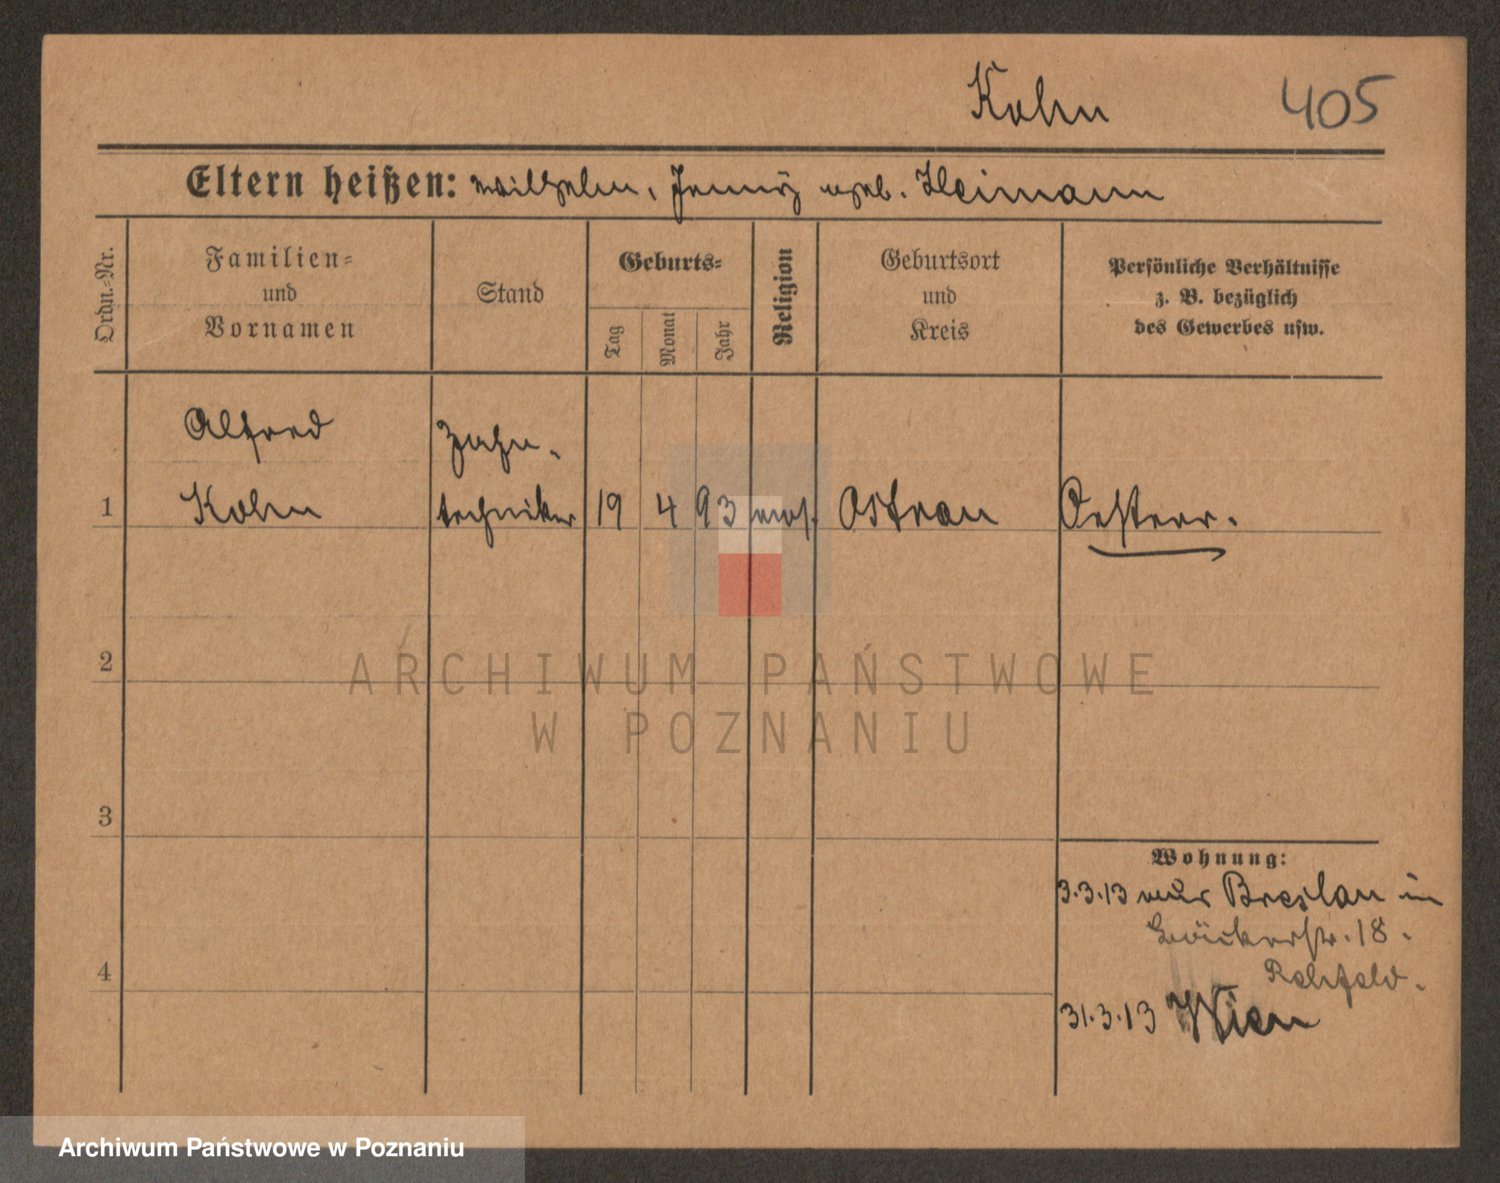 Kohn 405
Eltern heißen: Wilhelm, Jenny geb. Heimann
Ordn.=Nr.
Familien=
und
Vornamen
Stand
Geburts=
Tag
Monat
Jahr
Religion
Geburtsort
und
Kreis
Persönliche Verhältnisse
z. B. bezüglich
des Gewerbes usw.
Alfred Zahn-
1 Kohn techniker 19 4 93 mos. Ostrau Oesterr.
2
ARCHIWUM PAŃSTWOWE
W POZNANIU
3
Wohnung:
3.3.13 aus Breslau in
Bäckerstr. 18.
4
Rehfeld.
31.3.13 Wien
Archiwum Państwowe w Poznaniu